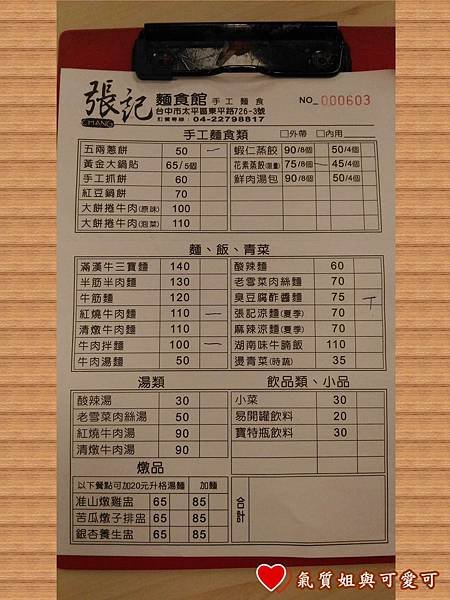 張記 麵食館 手工麵食 NO_000603
CHANG
台中市太平區東平路726-3號
訂餐專線：04-22798817
手工麵食類 □外帶 □內用
五兩蔥餅 50 一 蝦仁蒸餃 90/8個 50/4個
黃金大鍋貼 65/5個 花素蒸餃(限量) 75/8個 一 45/4個
手工抓餅 60 鮮肉湯包 90/8個 50/4個
紅豆鍋餅 70
大餅捲牛肉(原味) 100
大餅捲牛肉(泡菜) 110
麵、飯、青菜
滿漢牛三寶麵 140 酸辣麵 60
半筋半肉麵 130 老雪菜肉絲麵 70
牛筋麵 120 臭豆腐酢醬麵 75 T
紅燒牛肉麵 110 一 張記涼麵(夏季) 70
清燉牛肉麵 110 麻辣涼麵(夏季) 70
牛肉拌麵 100 一 湖南味牛腩飯 110
牛肉湯麵 50 燙青菜(時蔬) 35
湯類 飲品類、小品
酸辣湯 30 小菜 30
老雪菜肉絲湯 50 易開罐飲料 20
紅燒牛肉湯 90 寶特瓶飲料 30
清燉牛肉湯 90
燉品
以下餐點可加20元升格湯麵 加麵 合計
准山燉雞盅 65 85
苦瓜燉子排盅 65 85
銀杏養生盅 65 85
氣質姐與可愛可